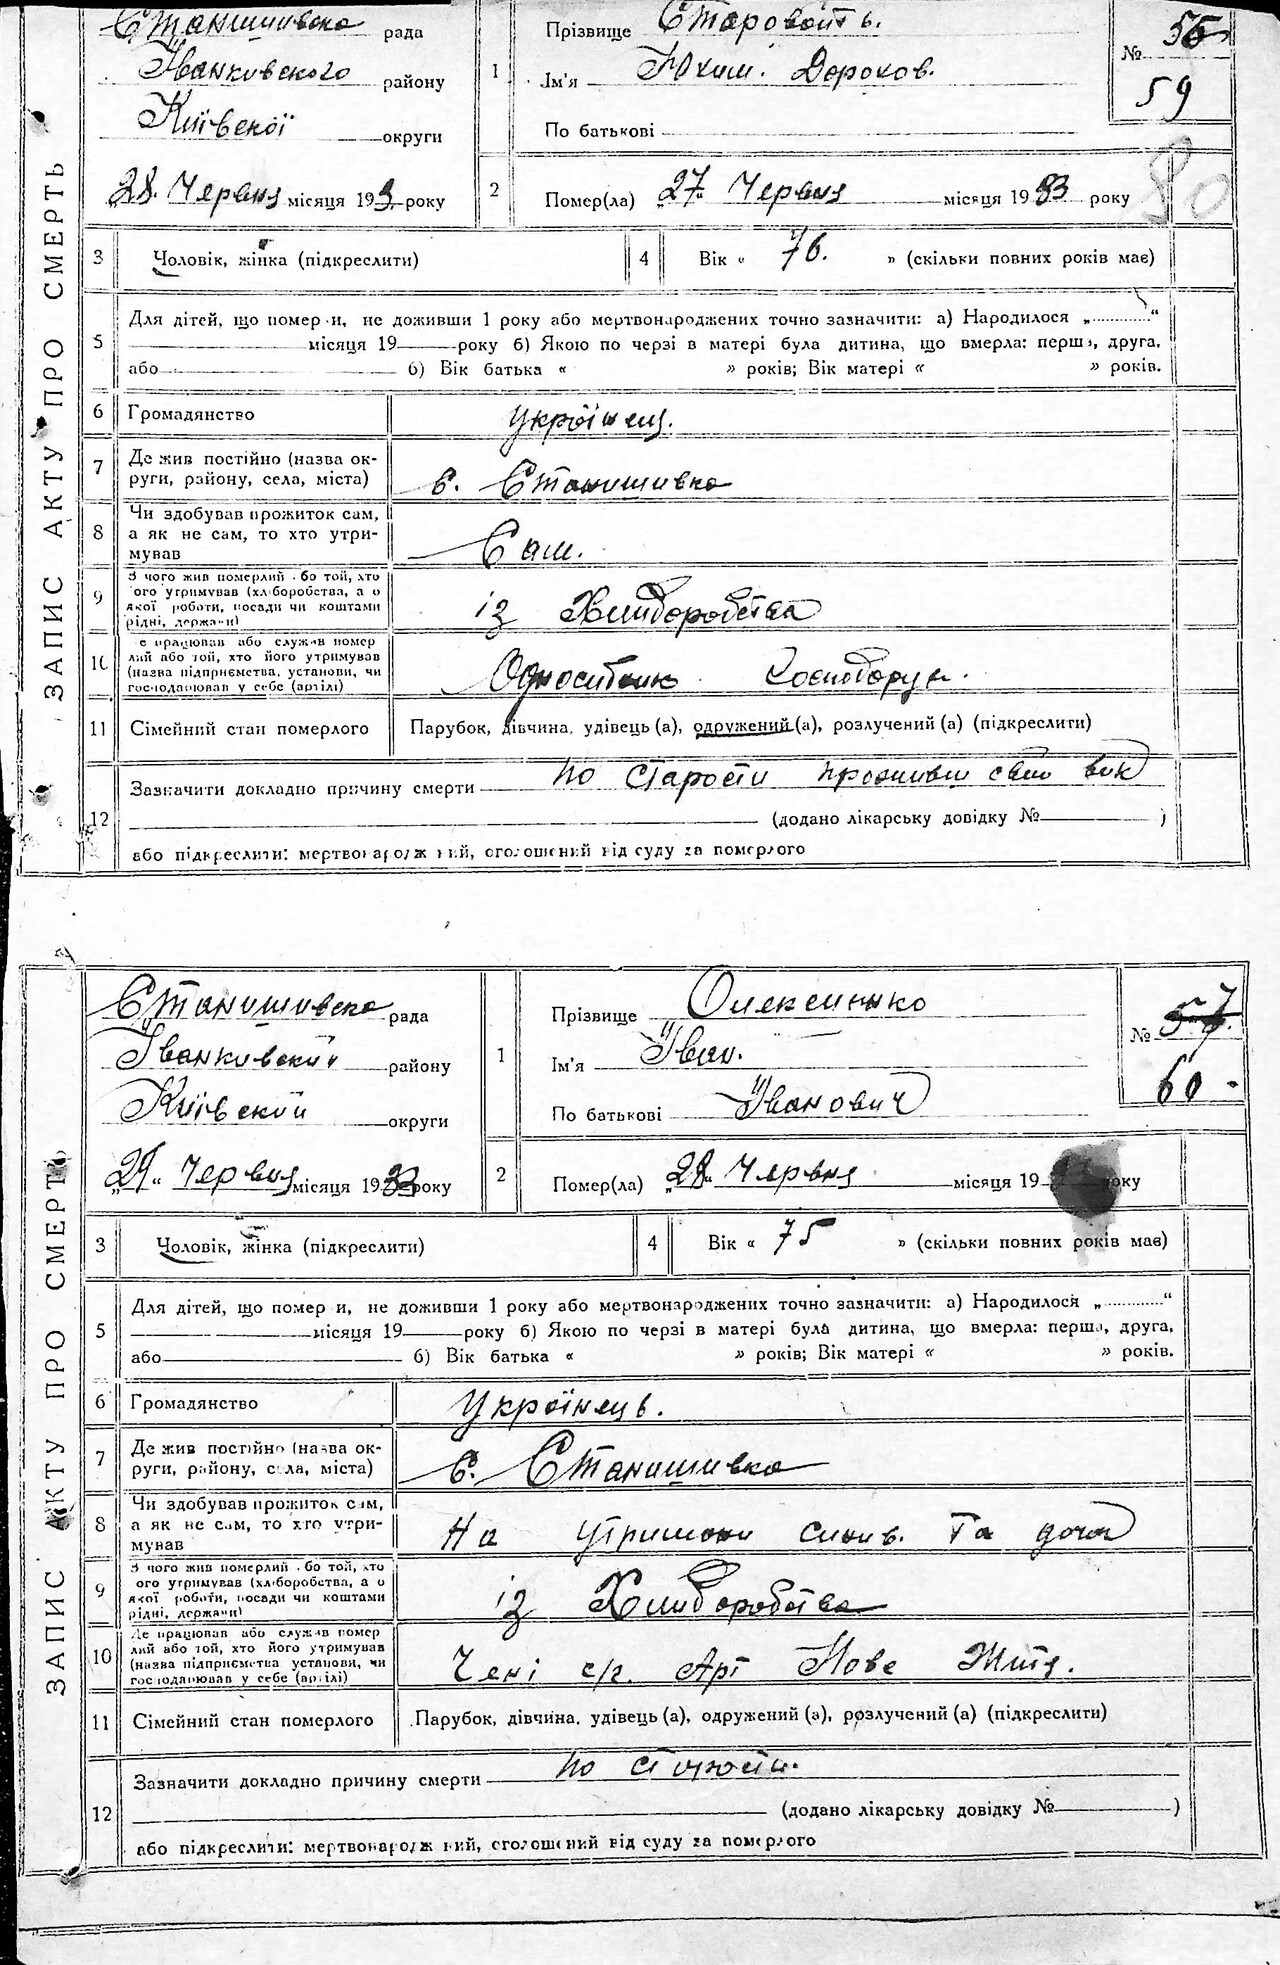 ЗАПИС АКТУ ПРО СМЕРТЬ
Станишивска рада
Іванкивского району
Київскої округи
28 Червня місяця 193 року
1
Прізвище Старовойть.
Ім'я Юхим. Дорохов.
По батькові
№ 56
59
80
2
Помер(ла) „27“ Червня місяця 1933 року
3 Чоловік, жінка (підкреслити)
4 Вік « 76. » (скільки повних років має)
5 Для дітей, що померли, не доживши 1 року або мертвонароджених точно зазначити: а) Народилося „ “
місяця 19 року б) Якою по черзі в матері була дитина, що вмерла: перша, друга,
або б) Вік батька « » років; Вік матері « » років.
6 Громадянство Украінец.
7 Де жив постійно (назва округи, району, села, міста) с. Станишивка
8 Чи здобував прожиток сам, а як не сам, то хто утримував Сам.
9 З чого жив померлий або той, хто його утримував (хліборобства, а о якої роботи, посади чи коштами рідні, держави) із Хлиборобства
10 Де працював або служив померлий або той, хто його утримував (назва підприємства, установи, чи господарював у себе (артілі)
11 Сімейний стан померлого Парубок, дівчина, удівець (а), одружений (а), розлучений (а) (підкреслити)
12 Зазначити докладно причину смерти по старости проживши свий вик
(додано лікарську довідку № )
або підкреслити: мертвонароджений, оголошений від суду за померлого
ЗАПИС АКТУ ПРО СМЕРТЬ
Станишивска рада
Іванкивский району
Київской округи
„29“ Червня місяця 1933 року
1
Прізвище Олексиенко
Ім'я Іван.
По батькові Іванович
№ 57.
60.
2
Помер(ла) „28“ Червня місяця 19 року
3 Чоловік, жінка (підкреслити)
4 Вік « 75 » (скільки повних років має)
5 Для дітей, що померли, не доживши 1 року або мертвонароджених точно зазначити: а) Народилося „ “
місяця 19 року б) Якою по черзі в матері була дитина, що вмерла: перша, друга,
або б) Вік батька « » років; Вік матері « » років.
6 Громадянство Украінець.
7 Де жив постійно (назва округи, району, села, міста) с. Станишивка
8 Чи здобував прожиток сам, а як не сам, то хто утримував На утримани синив. та
9 З чого жив померлий або той, хто його утримував (хліборобства, а о якої роботи, посади чи коштами рідні, держави) із Хлиборобства
10 Де працював або служив померлий або той, хто його утримував (назва підприємства установи, чи господарював у себе (артілі) с/г. Арт Нове Життя.
11 Сімейний стан померлого Парубок, дівчина, удівець (а), одружений (а), розлучений (а) (підкреслити)
12 Зазначити докладно причину смерти по старости.
(додано лікарську довідку № )
або підкреслити: мертвонароджений, оголошений від суду за померлого